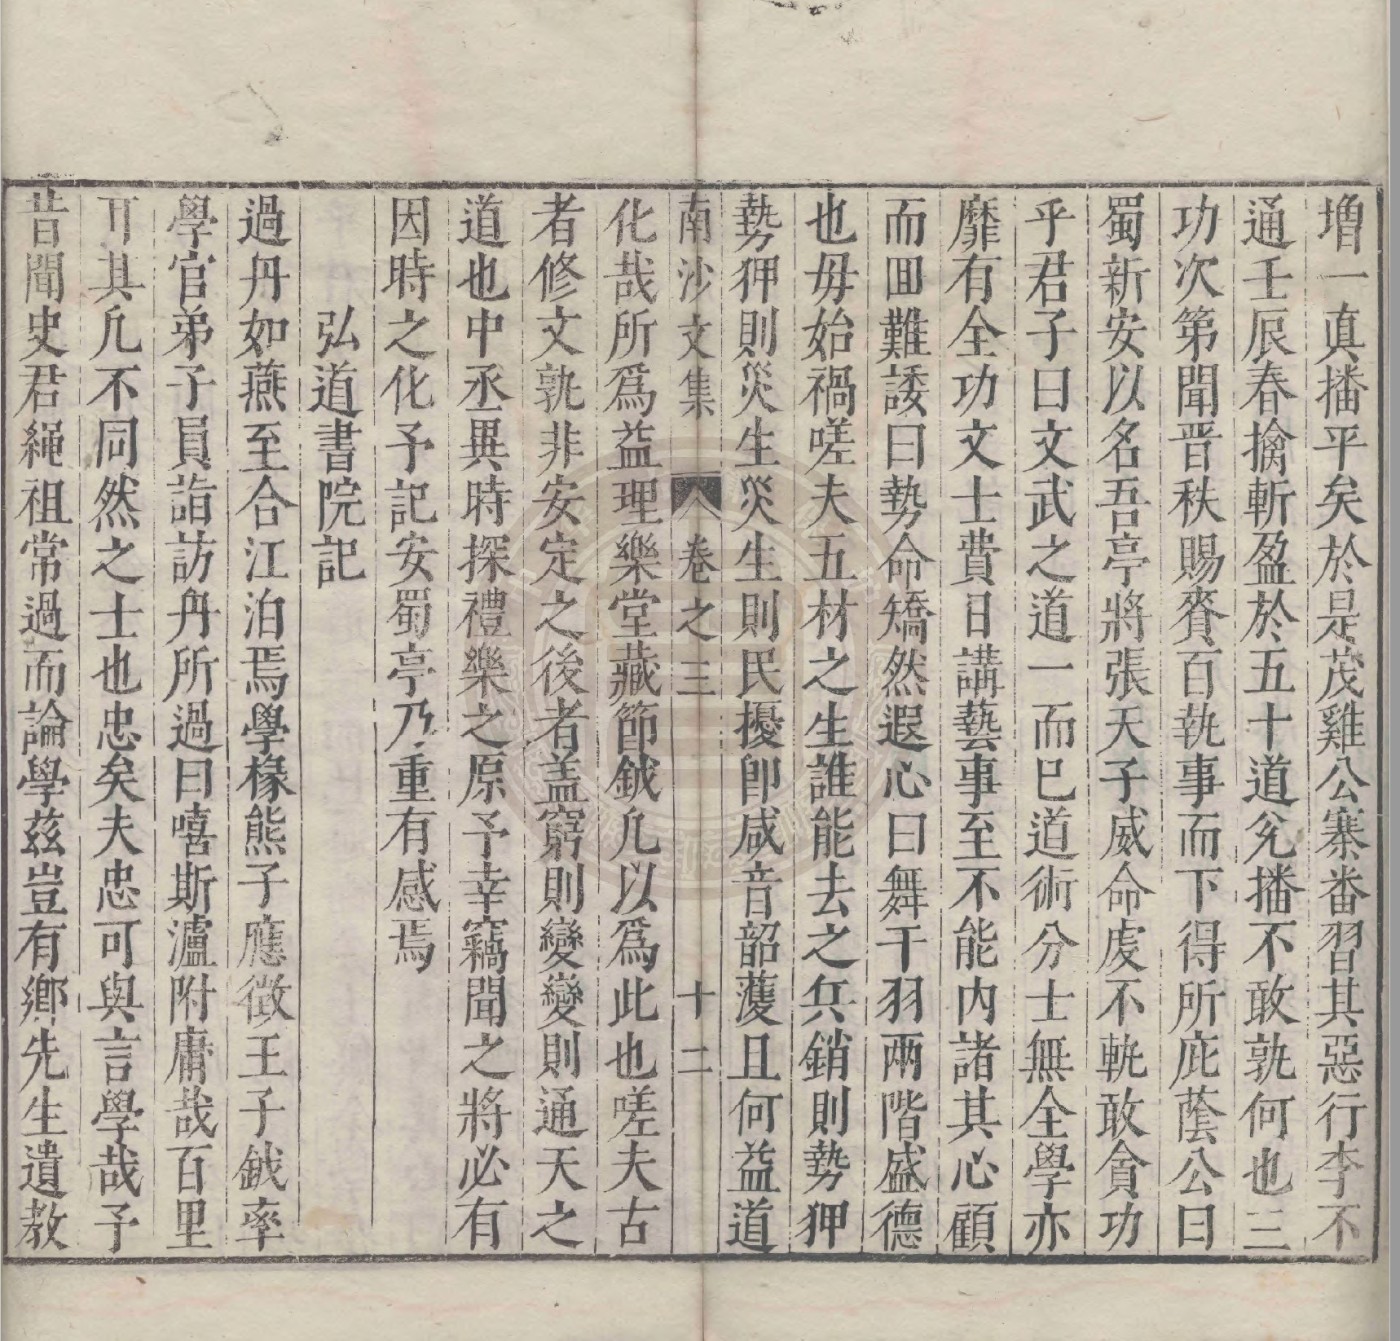 增一真播平矣於是茂雞公寨畨習其惡行李不
通壬辰春擒斬盈於五十道兊播不敢孰何也三
功次第聞晋秩賜賚百執事而下得所庇蔭公曰
蜀新安以名吾亭將張天子威命虔不軌敢貪功
乎君子曰文武之道一而巳道術分士無全學亦
靡有全功文士費日講藝事至不能內諸其心顧
而囬難諉曰勢命矯然遐心曰舞干羽兩階盛德
也毋始禍嗟夫五材之生誰能去之兵銷則勢狎
勢狎則災生災生則民擾卽咸音韶濩且何益道
南沙文集 卷之三 十二
化哉所爲益理樂堂藏節鉞凢以爲此也嗟夫古
者修文孰非安定之後者盖窮則變變則通天之
道也中丞異時探禮樂之原予幸竊聞之將必有
因時之化予記安蜀亭乃重有感焉
弘道書院記
過丹如燕至合江泊焉學椽熊子應徵王子鉞率
學官弟子員詣訪丹所過曰嘻斯瀘附庸哉百里
耳其凢不同然之士也忠矣夫忠可與言學哉予
昔聞史君繩祖常過而論學茲豈有鄉先生遺敎